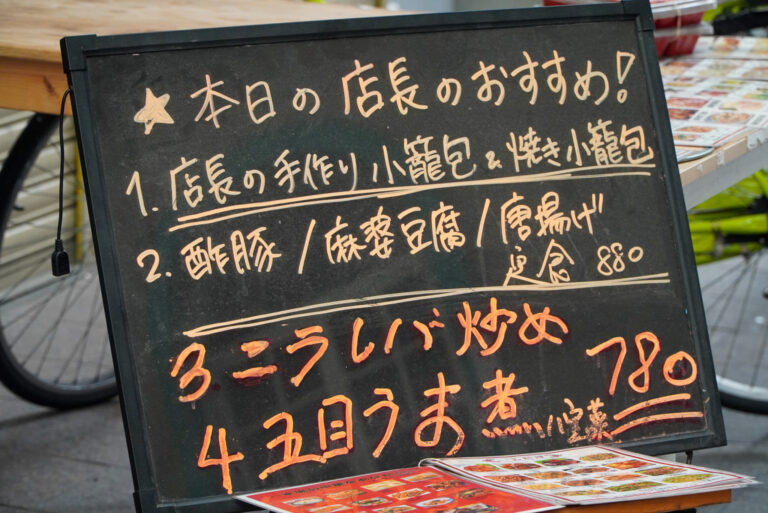 ★本日の店長のおすすめ!
1. 店長の手作り小籠包&焼き小籠包
2. 酢豚/麻婆豆腐/唐揚げ
定食 880
3 ニラレバ炒め
4 五目うま煮 780